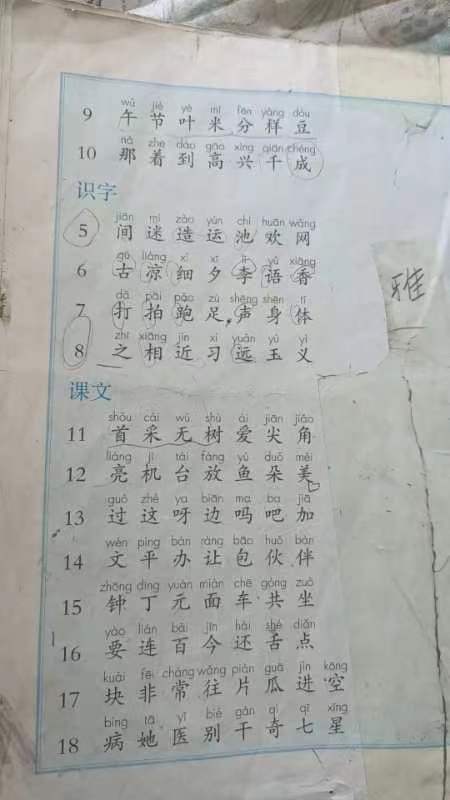 wǔ jié yè mǐ fēn yàng dòu
9 午 节 叶 米 分 样 豆
nà zhe dào gāo xìng qiān chéng
10 那 着 到 高 兴 千 成
识字
jiān mí zào yùn chí huān wǎng
5 间 迷 造 运 池 欢 网
gǔ liáng xì xī lǐ yǔ xiāng
6 古 凉 细 夕 李 语 香
dǎ pāi pǎo zú shēng shēn tǐ
7 打 拍 跑 足 声 身 体
zhī xiāng jìn xí yuǎn yù yì
8 之 相 近 习 远 玉 义
雅
课文
shǒu cǎi wú shù ài jiān jiǎo
11 首 采 无 树 爱 尖 角
liàng jī tái fàng yú duǒ měi
12 亮 机 台 放 鱼 朵 美
guò zhè ya biān ma ba jiā
13 过 这 呀 边 吗 吧 加
wén píng bàn ràng bāo huǒ bàn
14 文 平 办 让 包 伙 伴
zhōng dīng yuán miàn chē gòng zuò
15 钟 丁 元 面 车 共 坐
yào lián bǎi jīn hái shé diǎn
16 要 连 百 今 还 舌 点
kuài fēi cháng wǎng piàn guā jìn kōng
17 块 非 常 往 片 瓜 进 空
bìng tā yī bié gàn qí qī xīng
18 病 她 医 别 干 奇 七 星